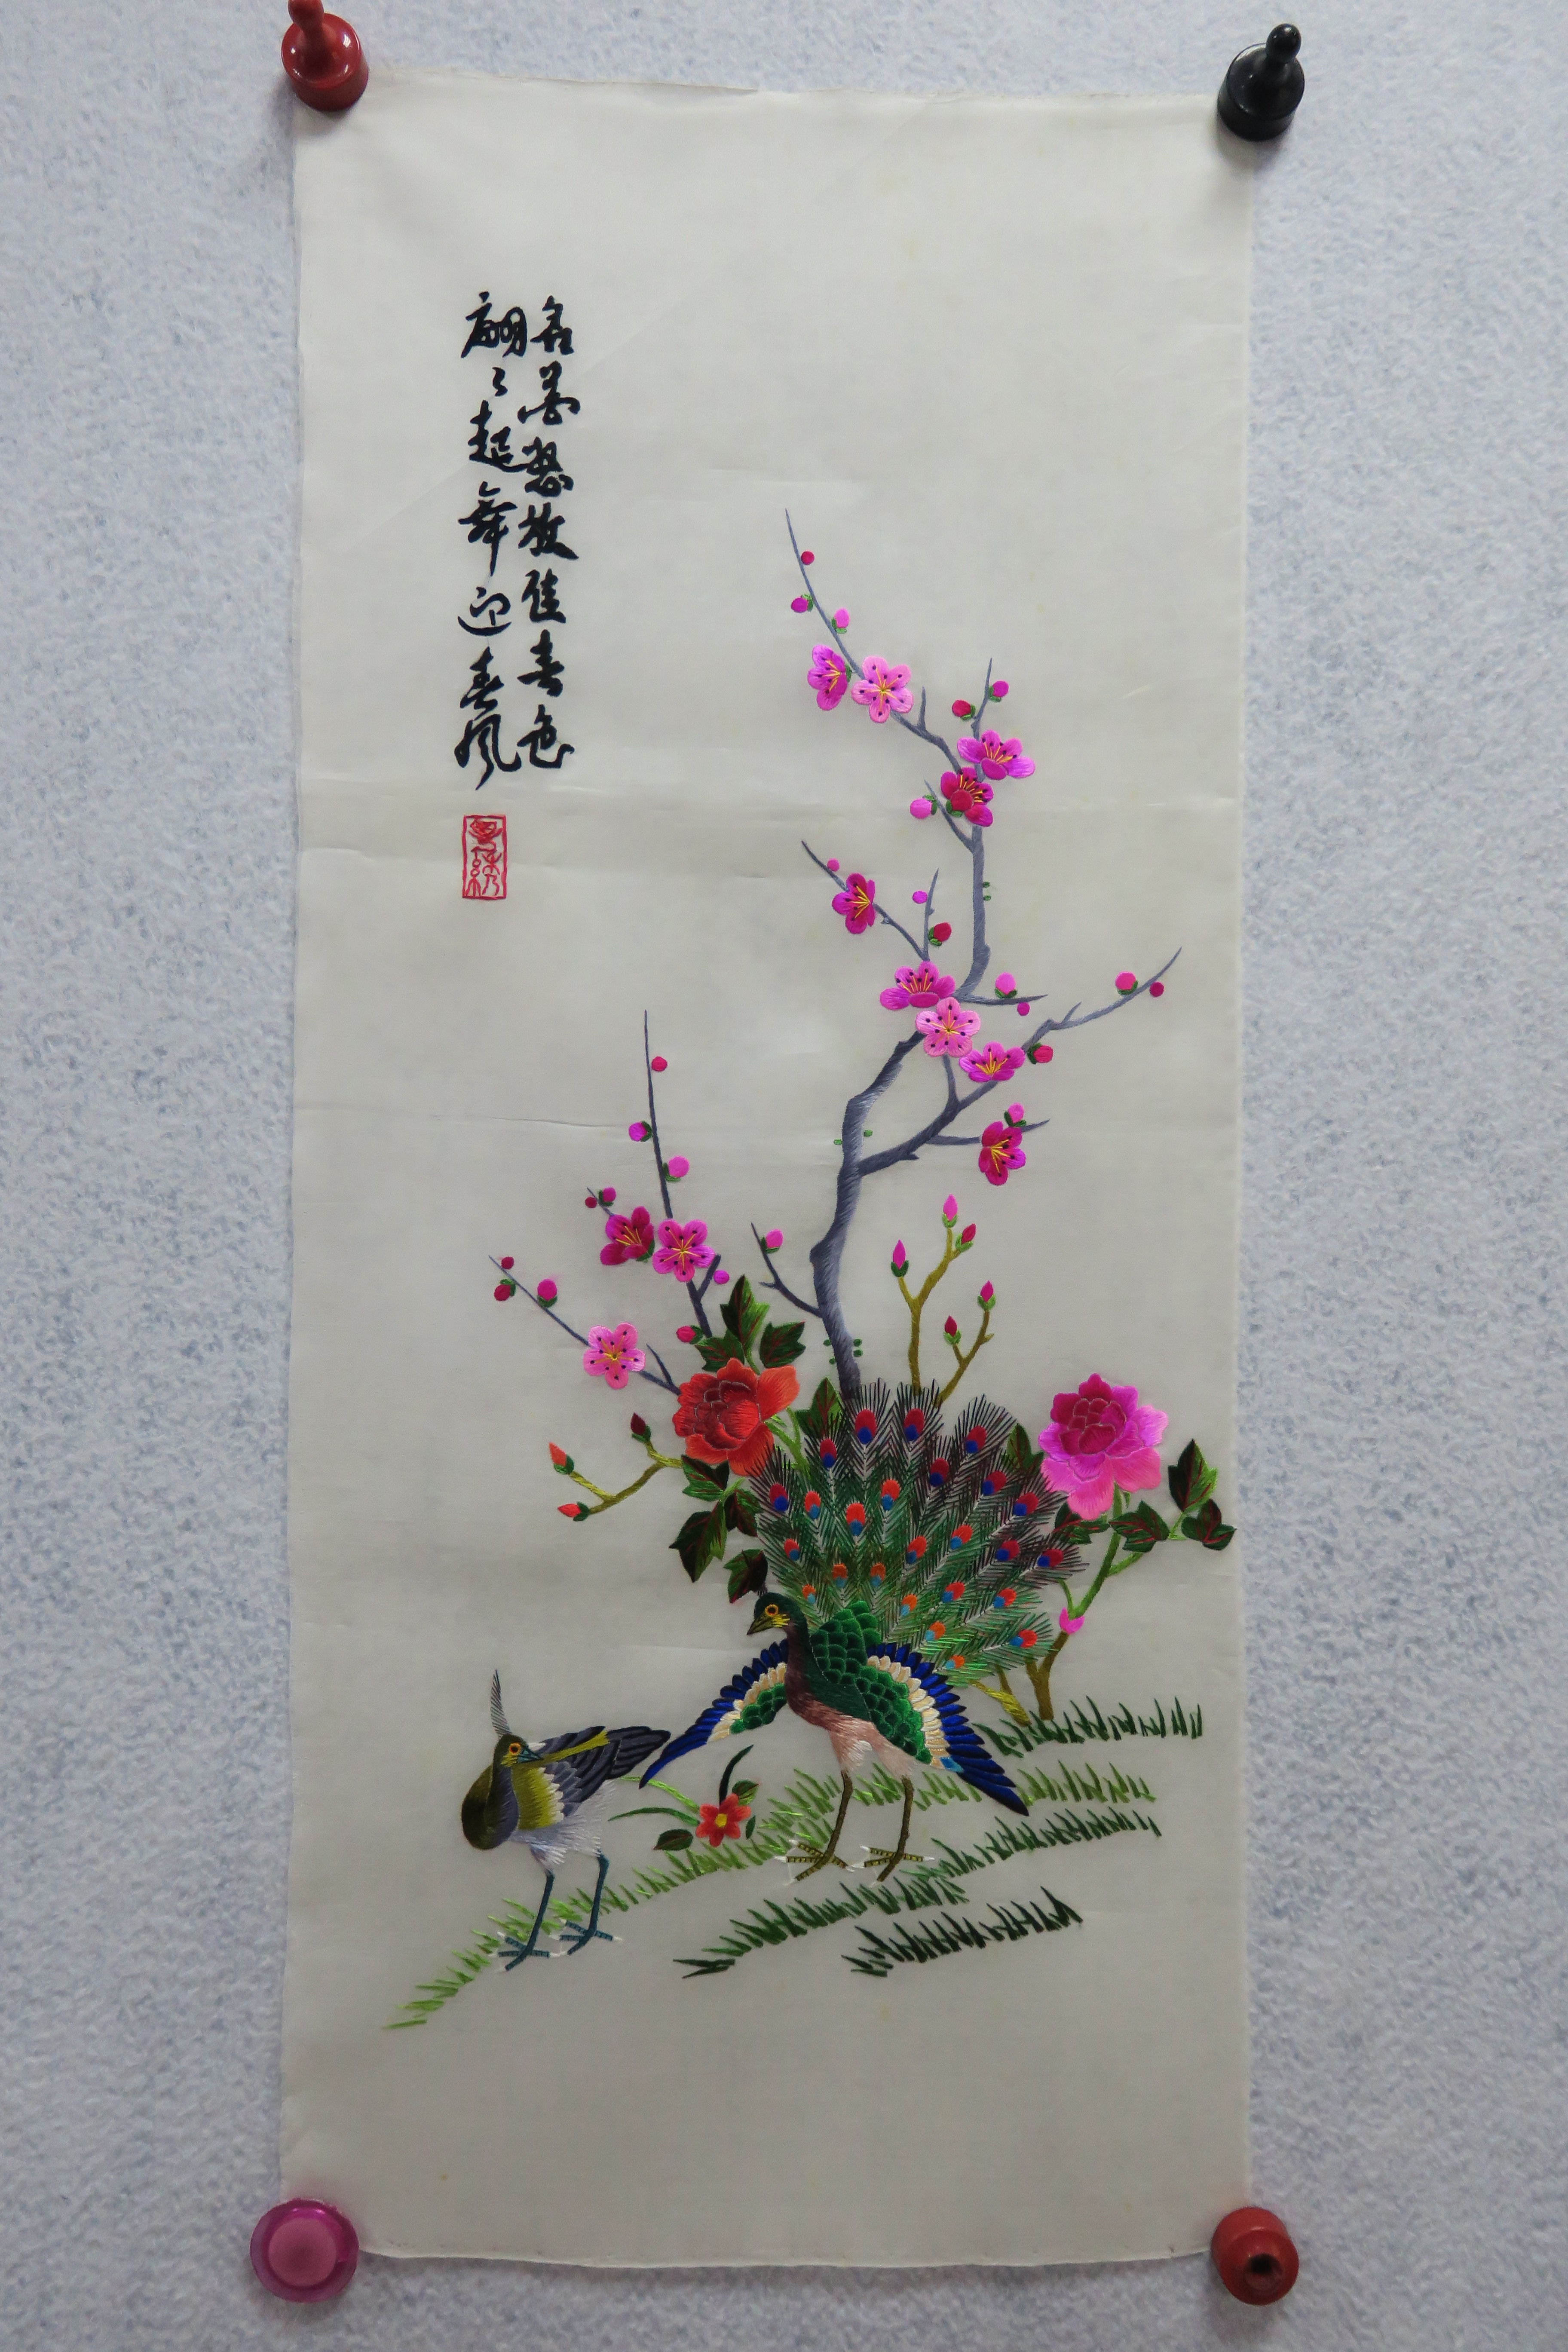 名花怒放佳春色
翩々起舞迎春風
粤绣